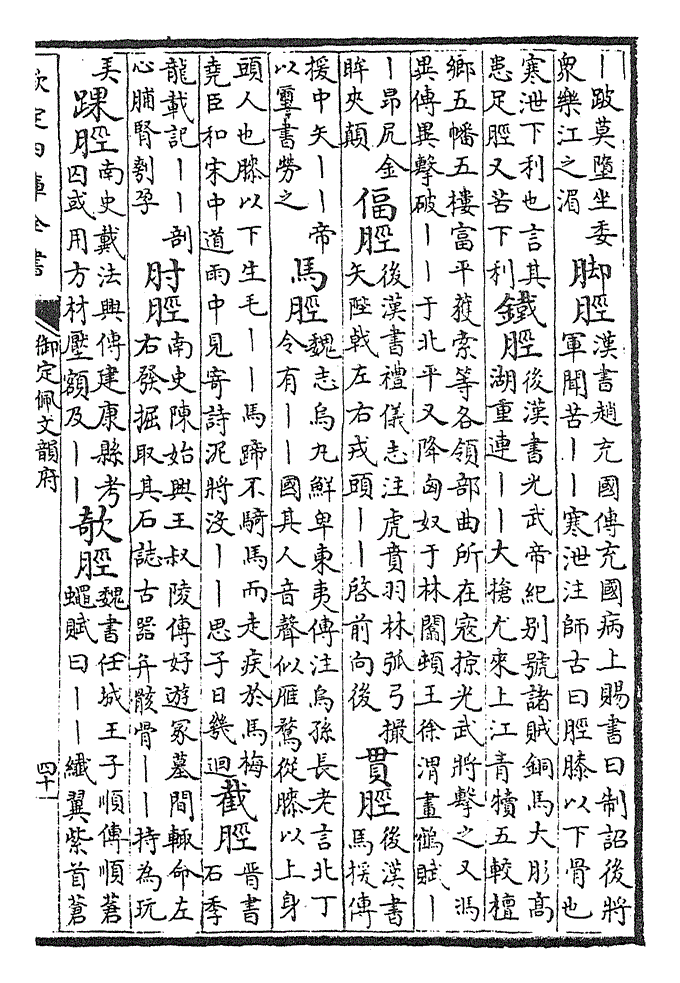 ｜跛莫墮坐委
衆樂江之湄
脚脛
漢書趙充國傳充國病上賜書曰制詔後將
軍聞苦｜｜寒泄注師古曰脛膝以下骨也
寒泄下利也言其
患足脛又苦下利
鐵脛
後漢書光武帝紀别號諸賊銅馬大肜高
湖重連｜｜大搶尤來上江青犢五較檀
鄉五幡五樓富平獲索等各領部曲所在寇掠光武將擊之又馮
異傳異擊破｜｜于北平又降匈奴于林闟頓王徐渭畫鶴賦｜
｜昂尻金
眸夾顛
偪脛
後漢書禮儀志注虎賁羽林弧弓撮
矢陛戟左右戎頭｜｜啓前向後
貫脛
後漢書
馬援傳
援中矢｜｜帝
以璽書勞之
馬脛
魏志烏九鮮卑東夷傳注烏孫長老言北丁
令有｜｜國其人音聲似雁鶩從膝以上身
頭人也膝以下生毛｜｜馬蹄不騎馬而走疾於馬梅
堯臣和宋中道雨中見寄詩泥將没｜｜思子日幾迴
截脛
晉書
石季
龍載記｜｜剖
心脯腎刳孕
肘脛
南史陳始興王叔陵傳好遊冢墓間輙命左
右發掘取其石誌古器并骸骨｜｜持為玩
弄
踝脛
南史戴法興傳建康縣考
囚或用方材壓額及｜｜
欹脛
魏書任城王子順傳順蒼
蠅賦曰｜｜纖翼紫首蒼
欽定四庫全書
御定佩文韻府
四十